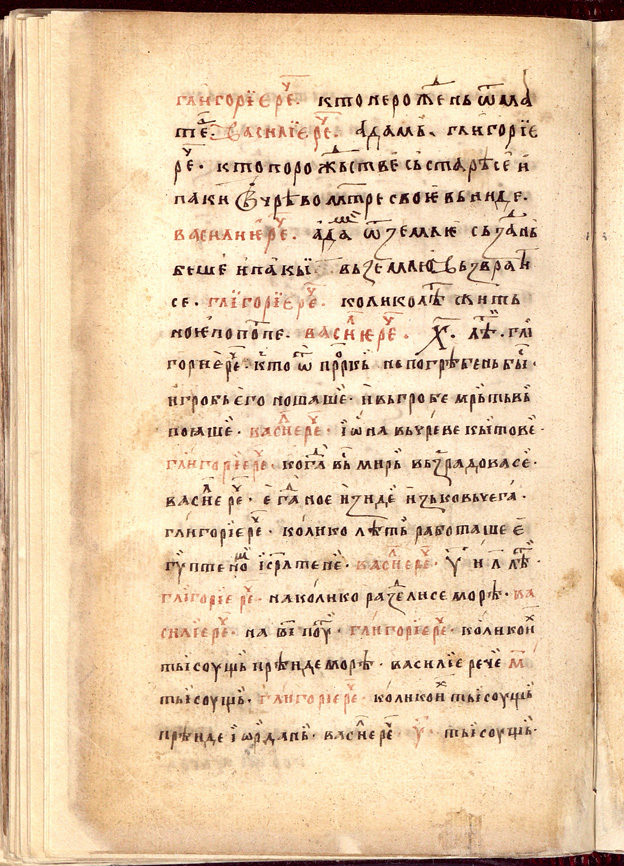 глигорїе реⷱ҇. кто не рожⷣень ѿ ма
те. василїе реⷱ҇. адамь. глигорїе
реⷱ҇. кто по рожⷣьстве сьстарѣ се и
паки вь чрѣво мт҃ре своѥ вьниде.
василиѥ реⷱ҇. адаⷨ ѿ землѥ сьзⷣань
беше и пакы вь землю вьзврати
се. глїгорїе реⷱ҇. колико лѣⷮ
ноѥ по по҃пе. васⷧиѥ реⷱ҇. х҃. лѣⷮ. гли
горие реⷱ҇. кто ѿ прⷪ҇ркь не погрѣбень бы.
и гробь его ношаше. и вь гробе мрьтьвь
поꙗше. васⷧие реⷱ҇. іѡна вь чреве китове.
глигорїе реⷱ҇. когⷣа вьⷭ мирь вьзрадова се.
васⷧие реⷱ҇. егⷣа ное изиде изь ковьчега.
глигорїе реⷱ҇. колико лѣть работаше е
гуптеноⷨ їсраⷧтене. васⷧие реⷱ҇. у҃ и л҃ лѣⷮ.
глїгорїе реⷱ҇. на колико разⷣели се море. ва
силїе реⷱ҇. на в҃і поуⷮ. глигорїе реⷱ҇. коликоⷯ
тысоущь прѣиде море. василїе рече м҃
тысоущь. глигорїе реⷱ҇. коликоⷯ тысоущь
прѣиде іѡрⷣдань. васⷧие реⷱ҇. у҃. тысоущь.